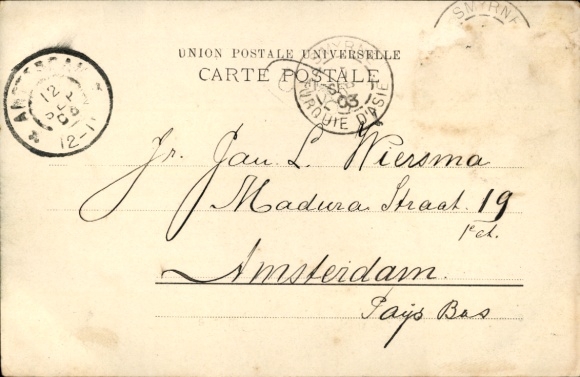 SMYRNE
UNION POSTALE UNIVERSELLE
CARTE POSTALE
SMYRNE
03
TURQUIE D'ASIE
AMSTERDAM
12-1
Jr. Jan. L. Wiersma
Madura Straat. 19
1e et.
Amsterdam.
Pays Bas